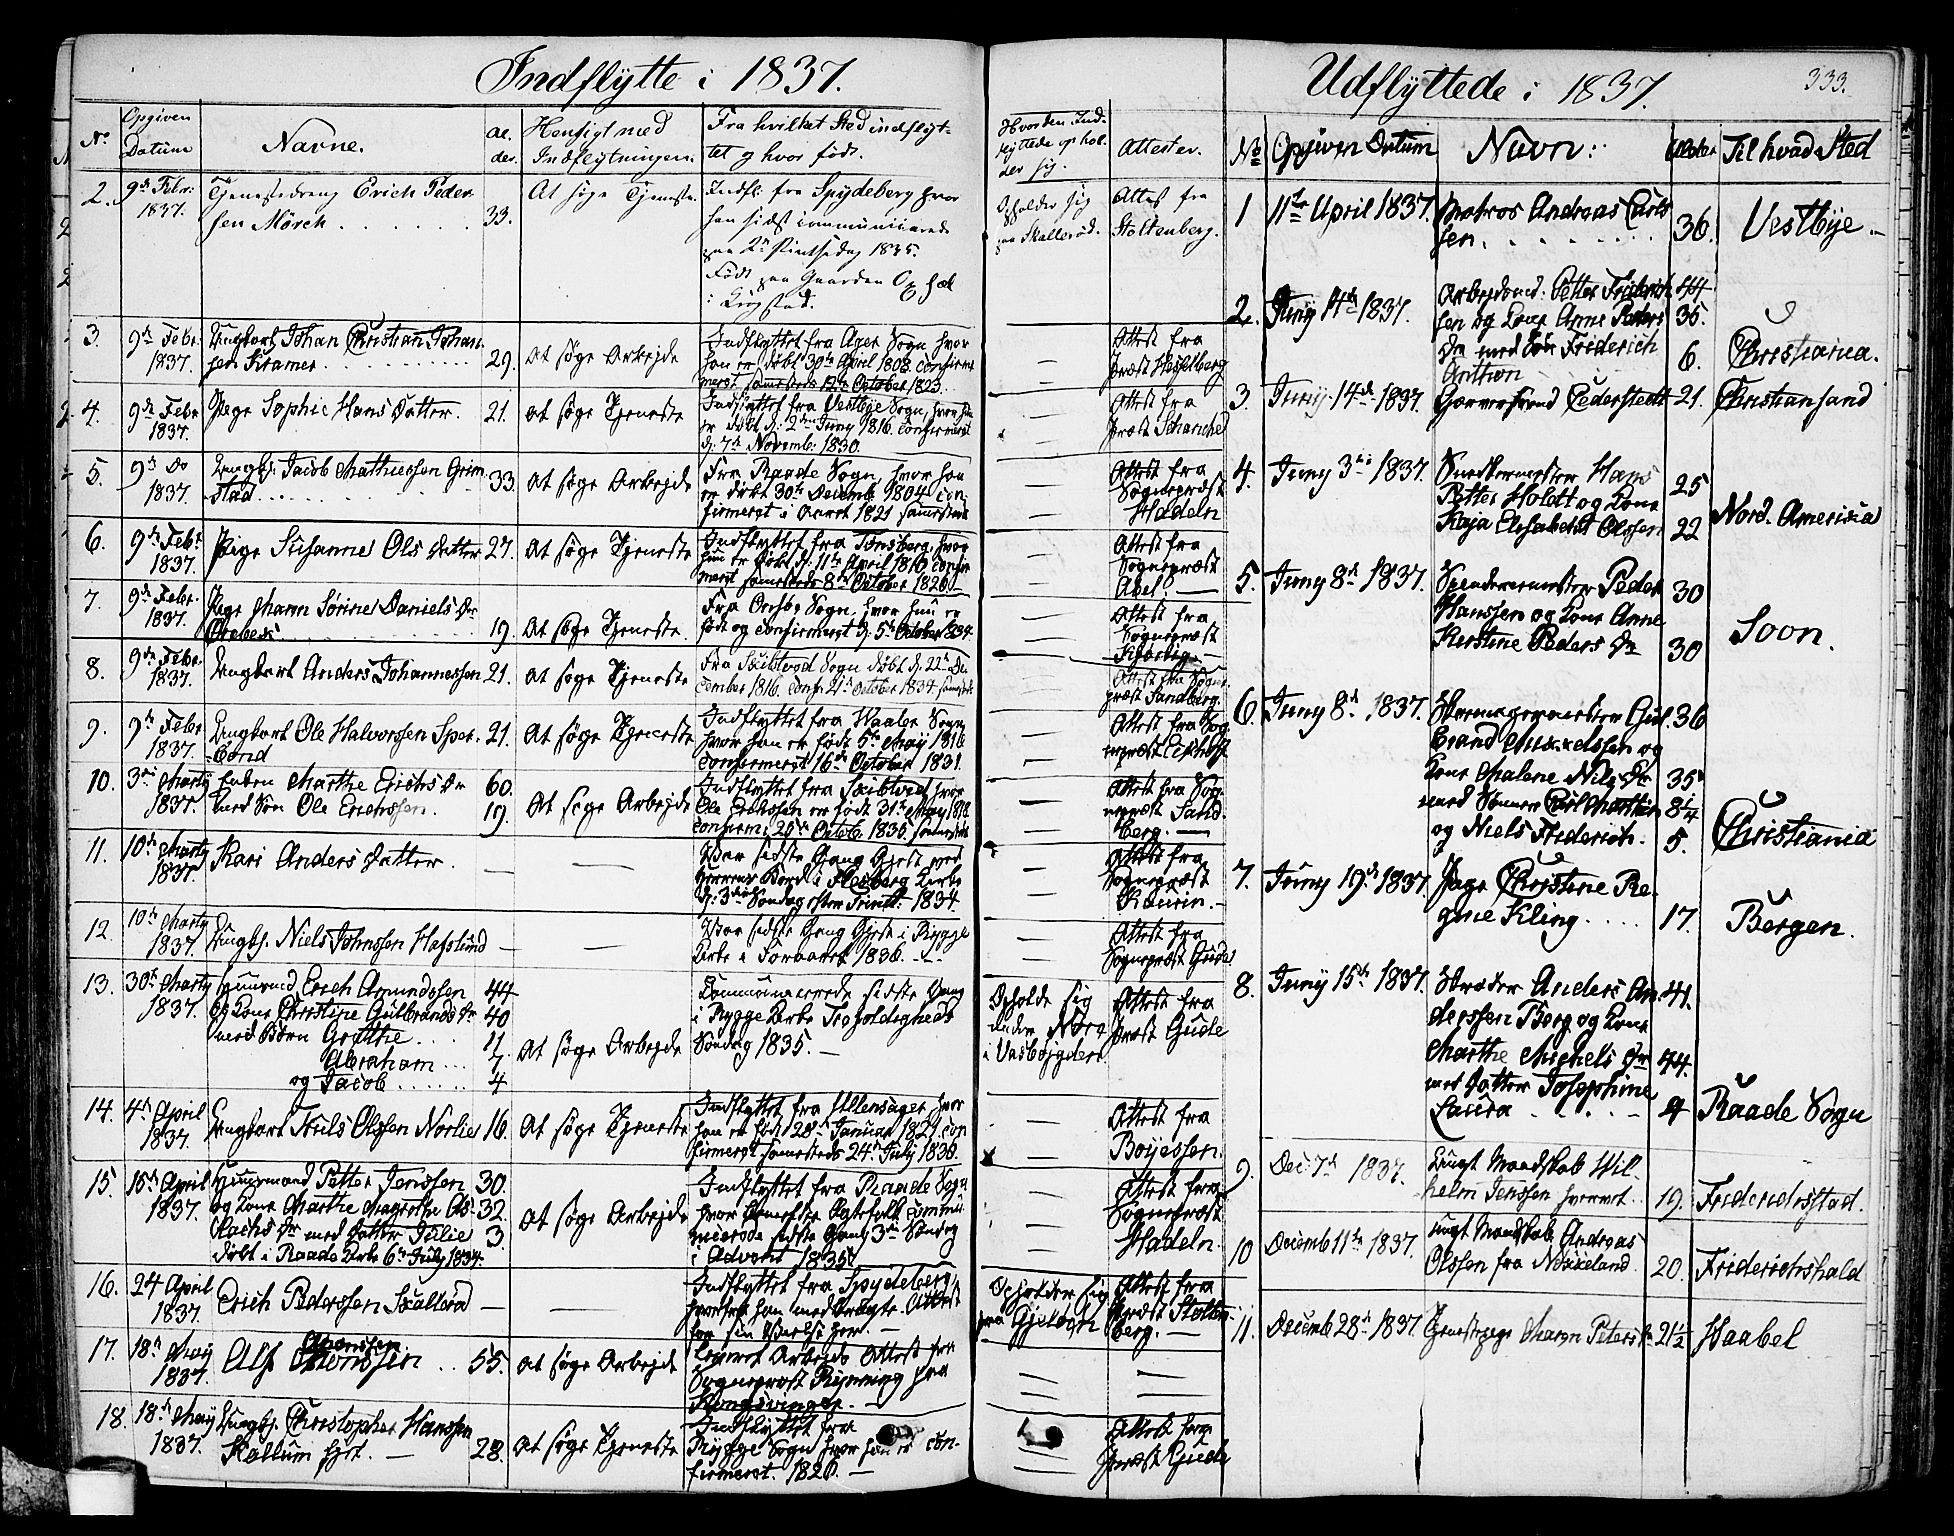 Indflytte i 1837.
No.
Opgiven Datum
Navne.
al. der.
Hensigt med Indflytningen.
Fra hvilket Sted indflyt-
tet og hvor født.
Hvor den Ind-
flyttede ophol-
der sig.
Attester.
2. 9de Febr: 1837.
Tjenestedreng Erich Peder-
sen Mörch
33.
At søge Tjeneste
Indfl. fra Spydeberg hvor
han sidst communicerede
paa 2den Pintsedag 1835.
Født paa Gaarden
i Krogstad.
Opholder sig
paa Skallerød.
Attest fra
Stoltenberg.
3. 9de Febr. 1837.
Ungkarl Johan Christian Johan-
sen Kramer
29.
At søge Arbejde
Indflyttet fra Ager Sogn hvor
han er døbt 30te April 1808. confir-
meret samesteds 12te October 1823.
Attest fra
Præst Hesselberg
4. 9de Febr 1837.
Pige Sophie Hans Datter.
21.
At søge Tjeneste
Indflyttet fra Vestbye Sogn, hvor hun
er døbt d: 2den Juny 1816. confirmeret
d. 7de Novemb: 1830.
Attest fra
Præst Schanche
5. 9de Do 1837.
Ungk. Jacob Mathiessen Grim-
stad
33.
At søge Arbejde
Fra Raade Sogn, hvor han
er døbt 30te Decemb. 1804. con-
firmeret i Aaret 1821 samesteds
Attest fra
Sognepræst
Hadeln
6. 9de Febr. 1837.
Pige Susanne Ols Datter
27.
At søge Tjeneste
Indflyttet fra Tønsberg, hvor
hun er døbt d. 11te April 1810. confir-
meret samesteds 8de October 1826.
Attest fra
Sognepræst
Abel.
7. 9de Febr. 1837.
Pige Maren Sørine Daniels Dr
19.
At søge Tjeneste
Fra Onsøe Sogn, hvor hun er
født og confirmeret d. 5te October 1834.
Attest fra
Sognepræst
8. 9de Febr. 1837.
Ungkarl Anders Johannessen
21.
At søge Tjeneste
Fra Skibtved Sogn døbt d. 22de De-
cember 1816. conf: 21de October 1834 samesteds
Attest fra Sogne-
præst Sandberg.
9. 9de Febr 1837.
Ungkarl Ole Halvorssen Sper-
21.
At søge Tjeneste
Indflyttet fra Waaler Sogn
hvor han er født 5te May 1816
confirmeret 16de October 1831.
Attest fra Sog-
nepræst
10. 3die Marty 1837.
Enken Marthe Erichs Dr
med Søn Ole Erichssen.
60.
19.
At søge Arbejde
Indflyttet fra Skibtved hvor
Ole Erichssen er født 31te May 1818
Attest fra Sog-
nepræst Sand-
berg.
11. 10de Marty 1837.
Kari Anders Datter.
Var sidste Gang Gjest ved
Herrens Bord i Flesberg Kirke
d. 3die Søndag efter Trinit: 1834.
Attest fra
Sognepræst
12. 10de Marty 1837.
Ungk. Niels Johnssen Hafslund
Var sidste Gang Gjest i Rygge
Kirke i Foraaret 1836.
Attest fra
Sognepræst Gude
13. 30te Marty 1837.
Huusmand Erich Amundssen
og Kone Christine Gulbrands Dr
med Børn Grethe
Abraham
og Jacob
44
40
11
7.
4
At søge Arbejde
Communicerede sidste Gang
i Rygge Kirke Trefoldigheds
Søndag 1835.
Opholde sig
under Nore
i
Attest fra
Præst Gude
14. 4de April 1837.
Ungkarl Niels Olssen Norlie
16.
At søge Tjeneste
Indflyttet fra Ullensager hvor
han er født 28de Januar 1821. con-
firmeret samesteds 24de July 1836.
Attest fra
Boyessen.
15. 15de April 1837.
Huusmand Petter Jenssen
og Kone Marthe Magrethe As-
lachs Dr med Datter Julie
døbt i Raade Kirke 6te July 1834.
30.
32.
3.
At søge Arbejde
Indflyttet fra Raade Sogn
hvor benævnte Ægtefolk commu-
nicerede sidste Gang 3die Søndag
i Advent 1835.
Attest fra
Sognepræst
Hadeln.
16. 24 April 1837.
Erich Pederssen Skallerød
Indflyttet fra Spydeberg,
hvorfra han medbragte Attest
for sin
Opholder sig
paa
Attest fra
Præst Stolten-
berg.
17. 18de May 1837.
Alf
55.
At søge Arbejde
Sognepræst fra
Kongsvinger.
18. 18de May 1837.
Ungk. Christopher Hanssen
Kallum
28.
At søge Tjeneste
Indflyttet fra
Rygge Sogn hvor han er con-
firmeret. 1826.
Attest fra
Præst Gude
Udflyttede i 1837.
333.
No
Opgiven Datum
Navn:
Alder
Til hvad Sted
1 11te April 1837.
Matros Andreas Carls-
sen.
36.
Vestbye.
2. Juny 14de 1837.
Arbejdsmd. Petter Friderich-
sen og Kone Anne Peders
Dr med Søn Friderich
Anthon
44
36.
6.
Christiania.
3. Juny 14de 1837.
Garversvend Cederstedt
21.
Christiansand
4. Juny 3die 1837.
Snedkermester Hans
Petter Holdt og Kone
Kaja Elisabeth Olssen
25
22
Nord. America
5. Juny 8de 1837.
Peder
Hanssen og Kone Anne
Kirstine Peders Dr
30
30
Soon.
6. Juny 8de 1837.
Skomagermester Gul-
brand Mikkelssen og
Kone Malene Nils Dr
med Sønner Carl Marthin
og Niels Friderich.
36
35
8¼
5.
Christiania
7. Juny 19de 1837
Pige Christine Re-
gine Kling.
17.
Bergen.
8. Juny 15de 1837.
Anders An-
derssen Berg og Kone
Marthe Mighels Dr
med Datter Josephine
Laura
41.
44.
4
Raade Sogn
9. Dec 7de 1837.
Ungt Mandskab Wil-
helm Jenssen
19.
Friderichsstad.
10 Decemb 11te 1837.
ungt Mandskab Andreas
Olssen fra
20.
Friderichshald
11. Decemb 28de 1837.
Tjenestepige Maren Peters Dr
21½
Haabel